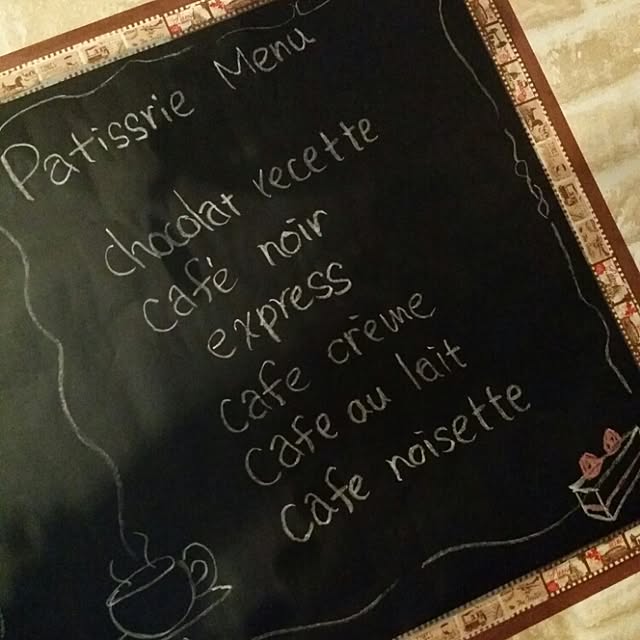 Patissrie Menu
chocolat recette
café noir
express
cafe crème
Cafe au lait
Cafe noisette